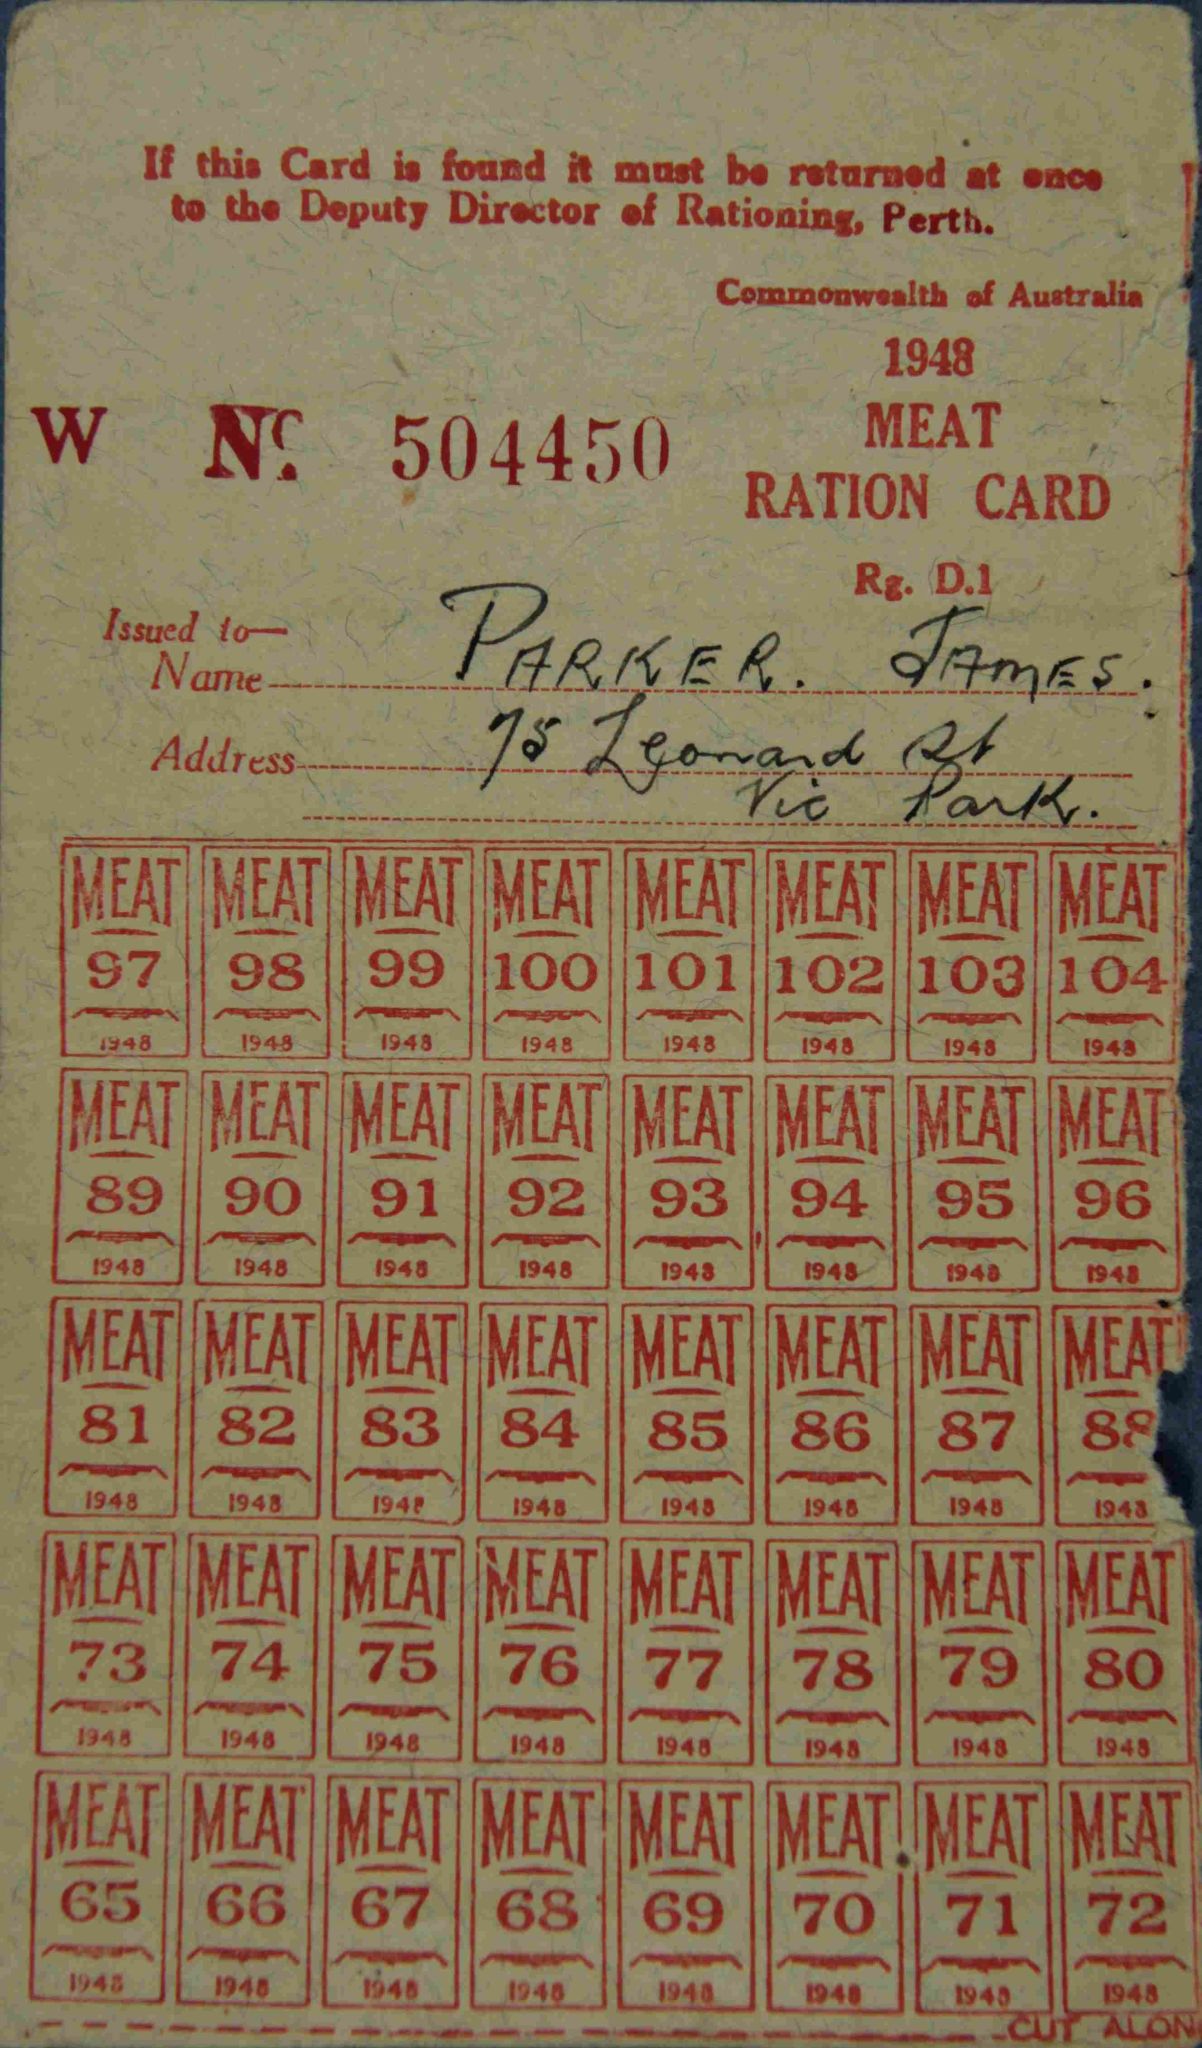 If this Card is found it must be returned at once
to the Deputy Director of Rationing, Perth.
Commonwealth of Australia
1948
MEAT
RATION CARD
W No. 504450
Rg. D.1
Issued to—
Name PARKER. JAMES.
Address 75 Leonard St
Vic Park.
MEAT MEAT MEAT MEAT MEAT MEAT MEAT MEAT
97 98 99 100 101 102 103 104
1948 1948 1948 1948 1948 1948 1948 1948
MEAT MEAT MEAT MEAT MEAT MEAT MEAT MEAT
89 90 91 92 93 94 95 96
1948 1948 1948 1948 1948 1948 1948 1948
MEAT MEAT MEAT MEAT MEAT MEAT MEAT MEAT
81 82 83 84 85 86 87 88
1948 1948 1948 1948 1948 1948 1948 1948
MEAT MEAT MEAT MEAT MEAT MEAT MEAT MEAT
73 74 75 76 77 78 79 80
1948 1948 1948 1948 1948 1948 1948 1948
MEAT MEAT MEAT MEAT MEAT MEAT MEAT MEAT
65 66 67 68 69 70 71 72
1948 1948 1948 1948 1948 1948 1948 1948
CUT ALON